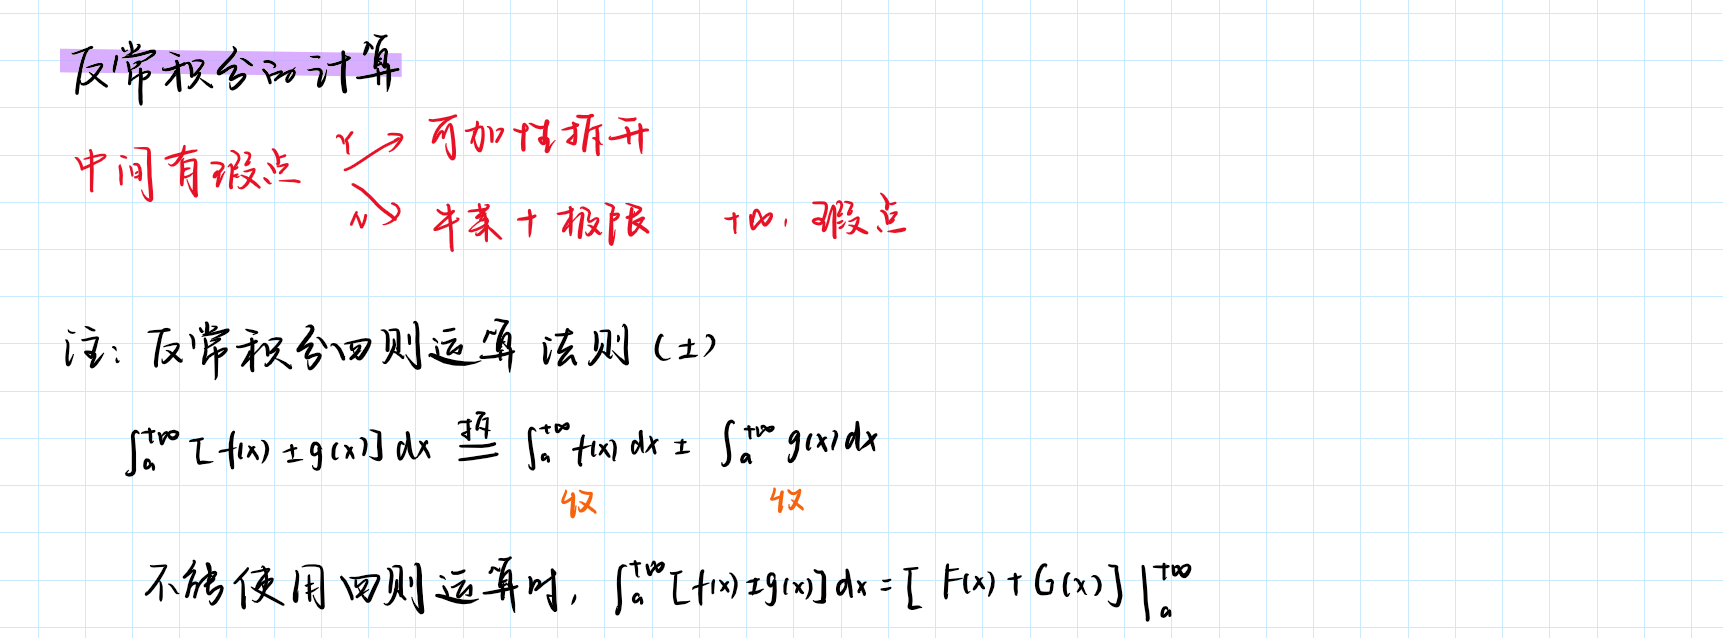 反常积分的计算
中间有瑕点 Y 可加性拆开
N 牛莱+极限 +∞, 瑕点
注: 反常积分四则运算法则 (±)
∫ₐ^{+∞} [f(x) ± g(x)] dx 拆= ∫ₐ^{+∞} f(x) dx ± ∫ₐ^{+∞} g(x) dx
收 收
不能使用四则运算时, ∫ₐ^{+∞} [f(x) ± g(x)] dx = [F(x) + G(x)] |ₐ^{+∞}